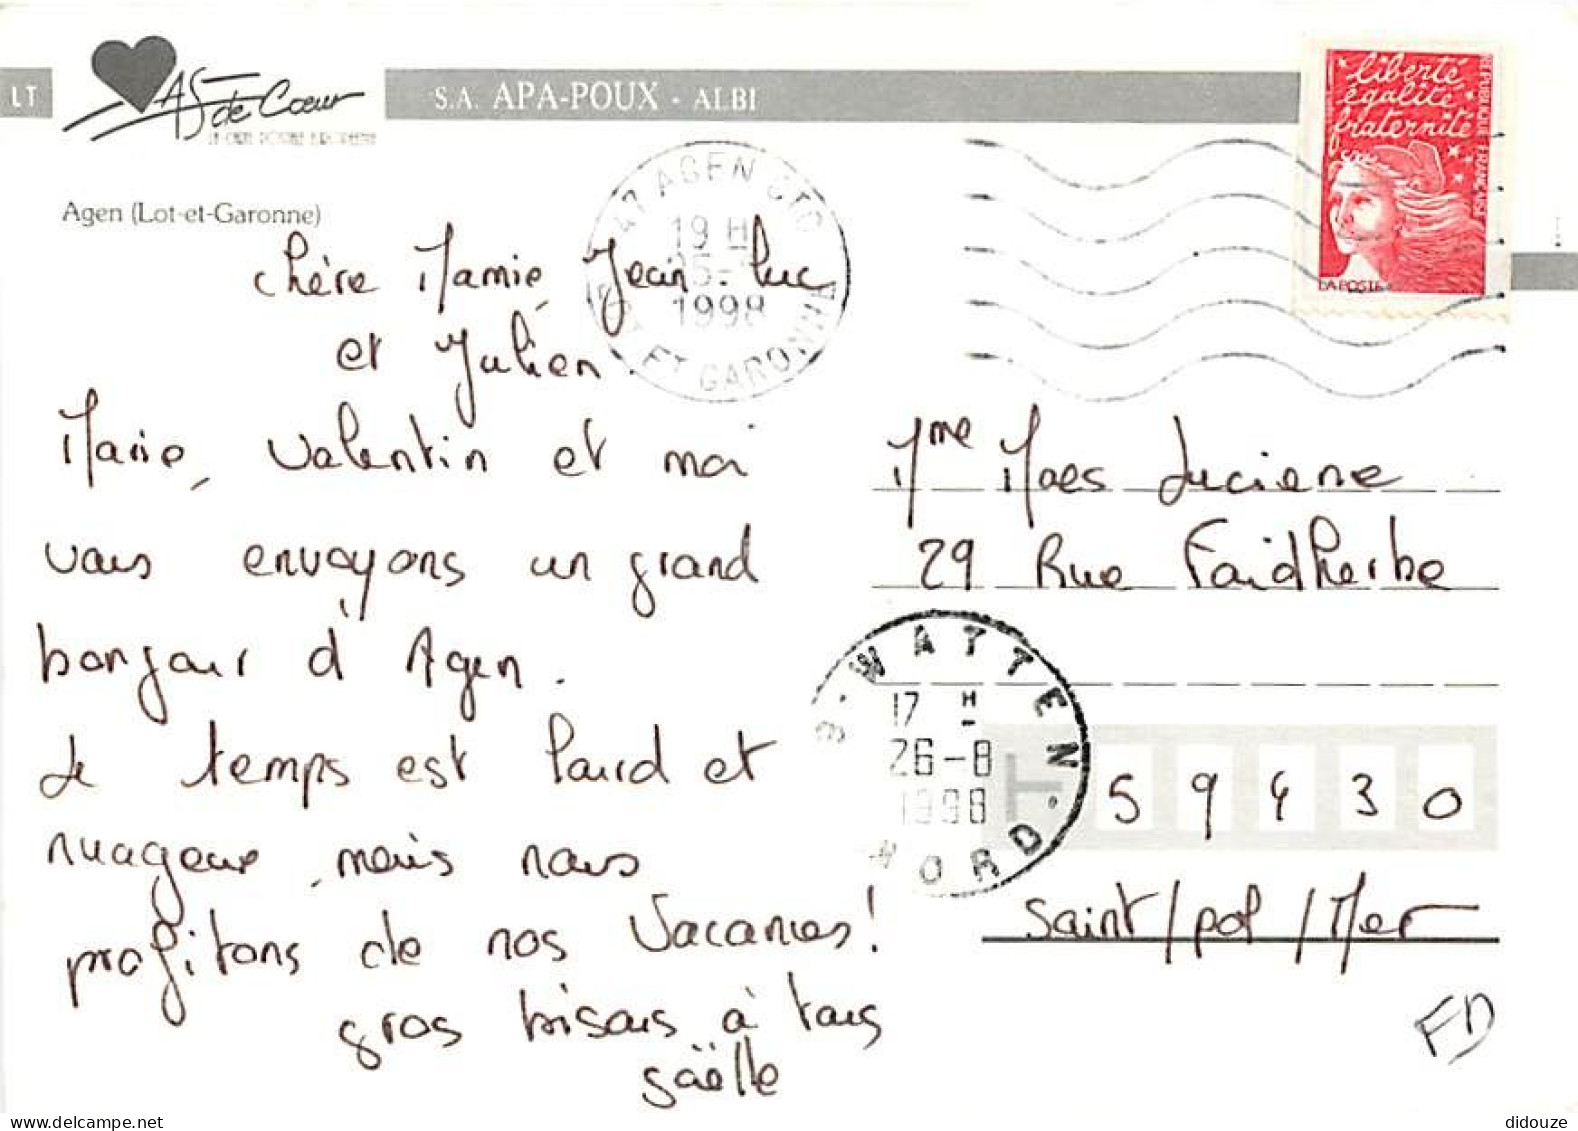 LT
As de Cœur
S.A. APA-POUX - ALBI
liberté
égalité
fraternité
RÉPUBLIQUE FRANÇAISE
LA POSTE
Agen (Lot-et-Garonne)
47 AGEN CTC
19 H
1998
LOT ET GARONNE
chère Mamie, Jean-Luc
et Julien.
Marie, Valentin et moi
vous envoyons un grand
bonjour d'Agen.
Le temps est lourd et
nuageux, mais nous
profitons de nos Vacances!
gros bisous à tous
gaëlle
Mme Maes Luciene
29 Rue Faidherbe
WATTEN
17 H
26-8
1998
NORD
59430
Saint/pol/Mer
FD
didouze